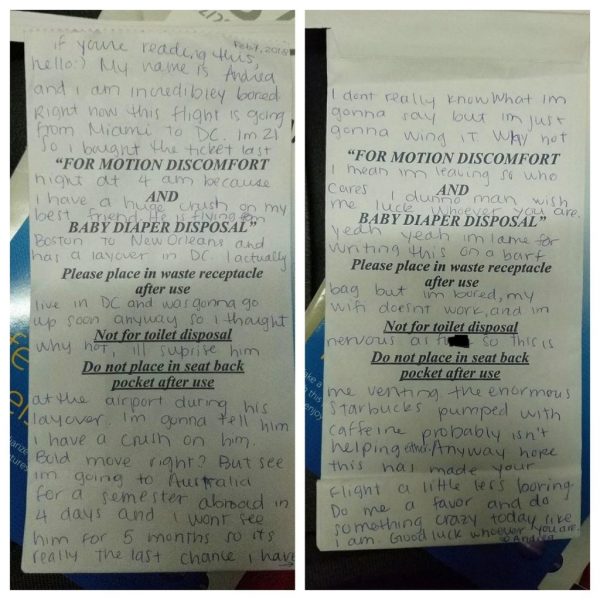 Feb 7, 2018
if youre reading this,
hello! My name is Andrea
and i am incredibley bored
Right now this flight is going
from Miami to DC. Im 21
so i bought the ticket last
"FOR MOTION DISCOMFORT
night at 4 am because
AND
i have a huge crush on my
best friend. He is flying from
BABY DIAPER DISPOSAL"
Boston to New Orleans and
has a layover in DC. I actually
Please place in waste receptacle
after use
live in DC and was gonna go
up soon anyway so i thought
Not for toilet disposal
why not, ill suprise him
Do not place in seat back
pocket after use
at the airport during his
layover. I'm gonna tell him
i have a crush on him.
Bold move right? But see
im going to Australia
for a semester abroad in
4 days and i wont see
him for 5 months so its
really the last chance i have →
I dont really know what im
gonna say but im just
gonna wing it. Why not
"FOR MOTION DISCOMFORT
I mean im leaving so who
cares
AND
I dunno man wish
me luck whoever you are.
BABY DIAPER DISPOSAL"
yeah yeah im lame for
writing this on a barf
Please place in waste receptacle
after use
bag but im bored, my
wifi doesnt work, and im
Not for toilet disposal
nervous as so this is
Do not place in seat back
pocket after use
me venting. the enormous
Starbucks pumped with
caffeine probably isn't
helping either. Anyway hope
this has made your
flight a little less boring
Do me a favor and do
something crazy today like
i am. Good luck whoever you are.
Andrea